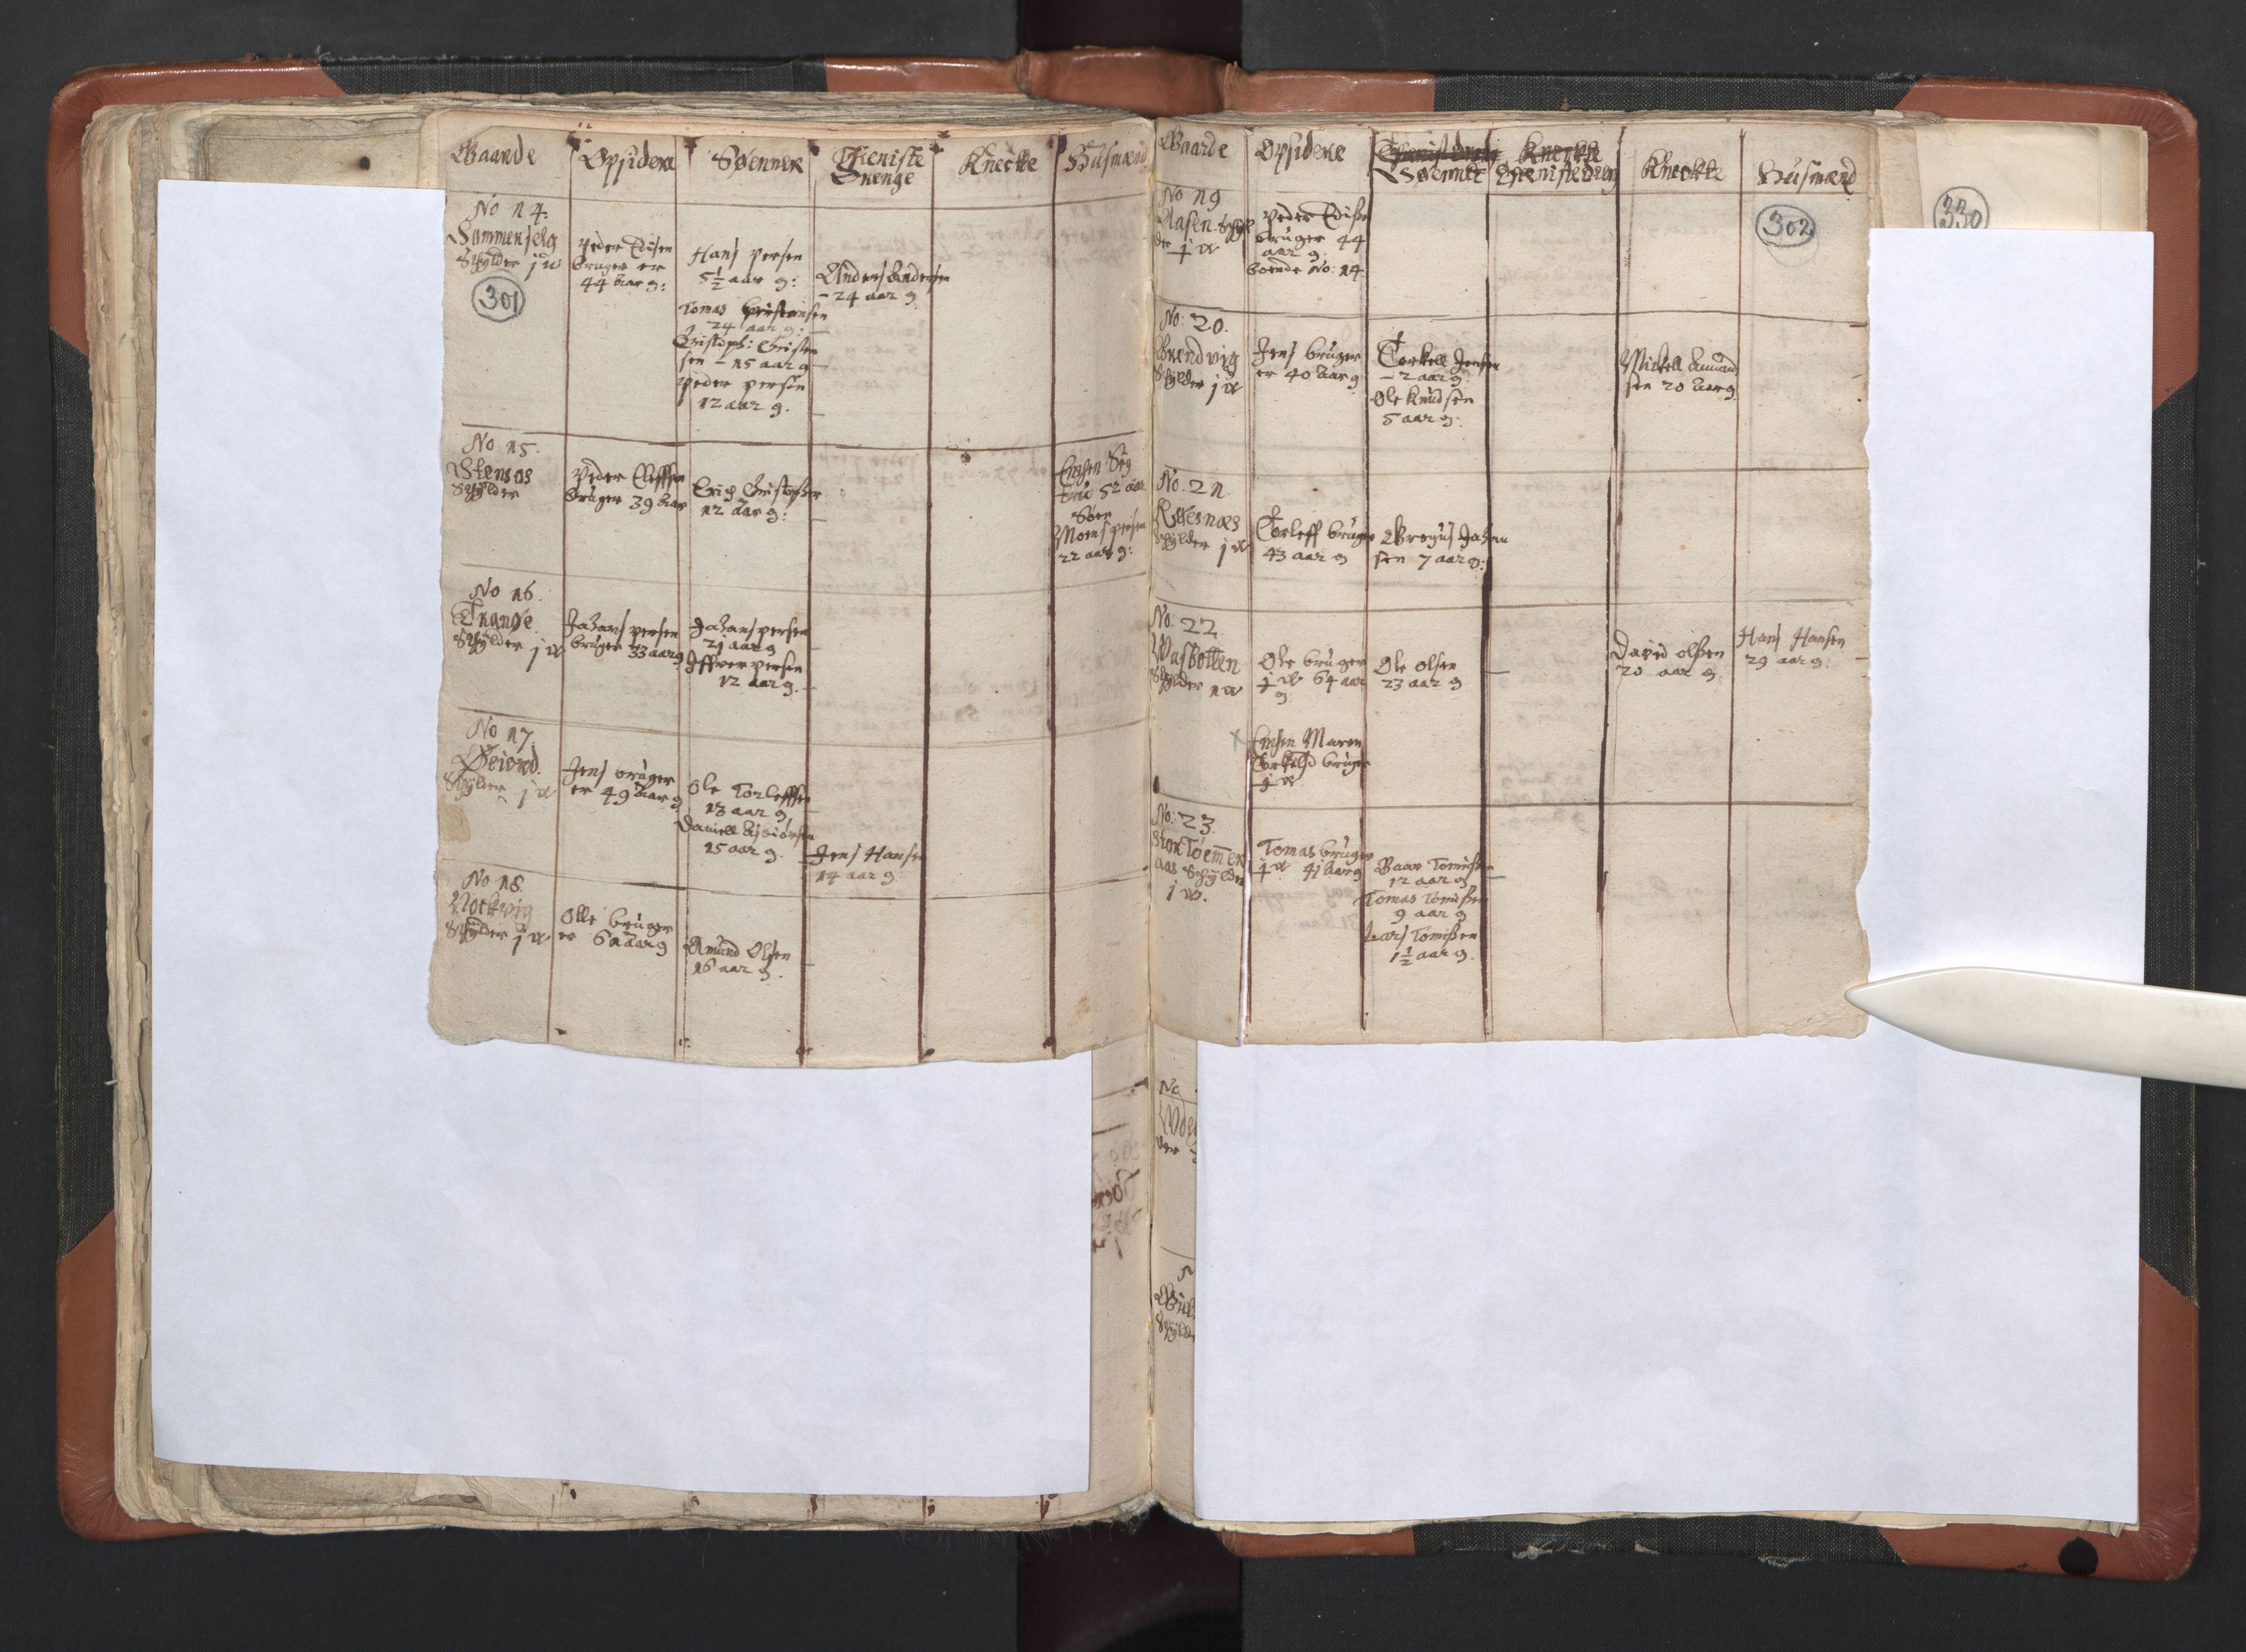 Gaarde
Opsidere
Sønner
Thieniste
Drenge
Kneckte
Husmænd
No 14:
Sammenselg
Skylder j w
301
Peder Edisen
bruger er
44 aar g:
Hans Persen
5½ aar g:
Tomas
24 aar g:
Cristoph: Cristen
sen - 15 aar g
Peder Persen
12 aar g.
Anders Andersen
- 24 aar g
No 15.
Stensos
Skylder
Peder
bruger 39 aar
Erich
12 aar g:
Encken Sig
52 aar
Søn
Mons Persen
22 aar g:
No 16.
Trange
Skylder j w
Johans Persen
bruger 33 aar g
Johans Persen
21 aar g
Iffver Persen
12 aar g.
No 17.
Øeiord.
Skylder j w
Jens bruger
er 49 aar g
Ole Torleffsen
13 aar g
Daniell
15 aar g.
Jens Hansen
14 aar g
No 18.
Nockvig
Skylder j w
Olle bruger
er 61 aar g
Amund Olsen
16 aar g.
Gaarde
Opsidere
Sønner
Kneckte
Thienistedreng
Kneckte
Husmænd
302
330
No 19
Aasen. Skyl
der ½ w
Peder Edissen
bruger 44
aar g
boende No: 14
No: 20.
Brendvig
Skylder j w
Jens bruger
er 40 aar g
Torkell Jensen
- 2 aar g.
Ole Knudsen
5 aar g:
Mickell Amund
sen 20 aar g
No. 21.
Refsnæs
Skylder j w
Torleff bruger
43 aar g
Gregus Johan
sen 7 aar g:
No: 22
Wasbotten
Skylder 1 w
Ole bruger
½ w 64 aar
g
Ole Olsen
23 aar g
David Olsen
20 aar g.
Hans Hansen
29 aar g.
Encken Maren
Torkelsd bruger
½ w
No: 23.
Stor Tømmer
aas Skylder
j w.
Tomas bruger
½ w 41 aar g
Baar Tomissen
12 aar g
Tomas Tomissen
9 aar g
Lars Tomissen
1½ aar g.
No